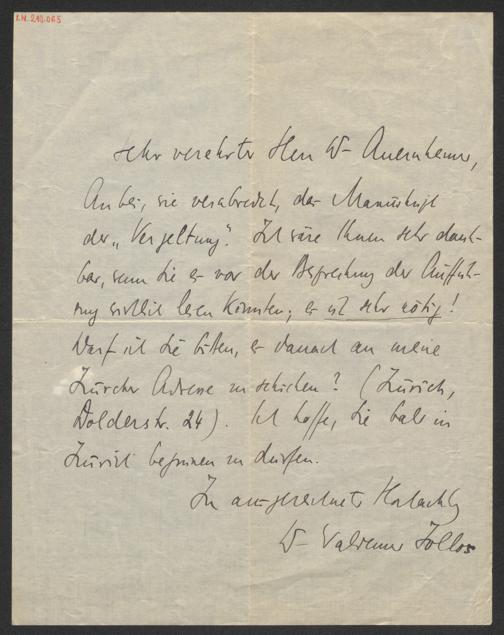 I.N. 210.065
sehr verehrter Herr Dr Auernheimer,
Anbei, wie verabredet, das Manuskript
der „Vergeltung“. Ich wäre Ihnen sehr dank-
bar, wenn Sie es vor der Besprechung der Aufführ-
ung wirklich lesen könnten; es ist sehr nötig!
Darf ich Sie bitten, es danach an meine
Zürcher Adresse zu schicken? (Zürich,
Dolderstr. 24). Ich hoffe, Sie bald in
Zürich begrüssen zu dürfen.
In ausgezeichneter Hochachtg
Dr